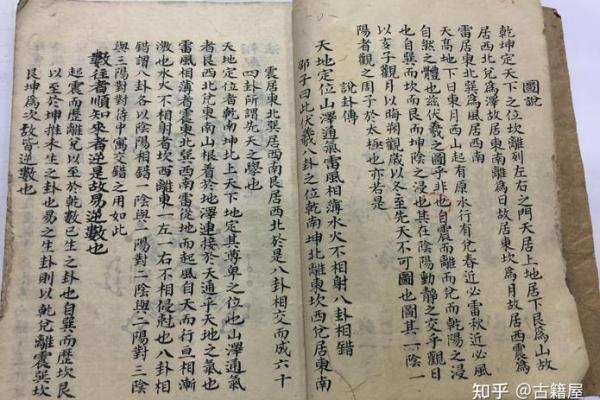 圖說
乾坤定天下之位坎離列左右之門天居上地居下艮為山故
居西北兌為澤故居東南離為日故居東坎為月故居西震為
雷居東北巽為風居西南
天高地下日東月西山起有原水行有兌春近必雷秋近必風
自然之體也茲伏羲之圖乎非也自震而離而兌而乾陽之浸
也自巽而坎而艮而坤陰之浸也其在陰陽動靜之交乎觀日
以亥子觀月以晦朔觀歲以冬至先天不可圖也圖其一陰一
陽者觀之周子於太極也亦若是
說卦傳
天地定位山澤通氣雷風相薄水火不相射八卦相錯
邵子曰此伏羲八卦之位乾南坤北離東坎西兌居東南
雲居東北巽居西南艮居西北於是八卦相交而成六十
四卦所謂先天之學也
天地定位者乾南坤北上天下地定其尊卑之位也山澤通氣
者艮西北兌東南山根着於地澤連接於天通乎天地之氣也
雷風相薄者震東北巽西南雷從地而起風自天而行亘相漸
激也水火不相射者坎西離東一左一右不相侵尅也八卦相
錯謂八卦各以陰陽相錯一陰與一陽對二陰與二陽對三陰
與三陽對對待中寓交錯之用如此
數往者順知來者逆是故易逆數也
起震而歷離兌以至於乾數已生之卦也自巽而歷坎艮
以至於坤推未生之卦也易之生卦則以乾兌離震巽坎
艮坤為次故皆逆數也
知乎 @古籍屋